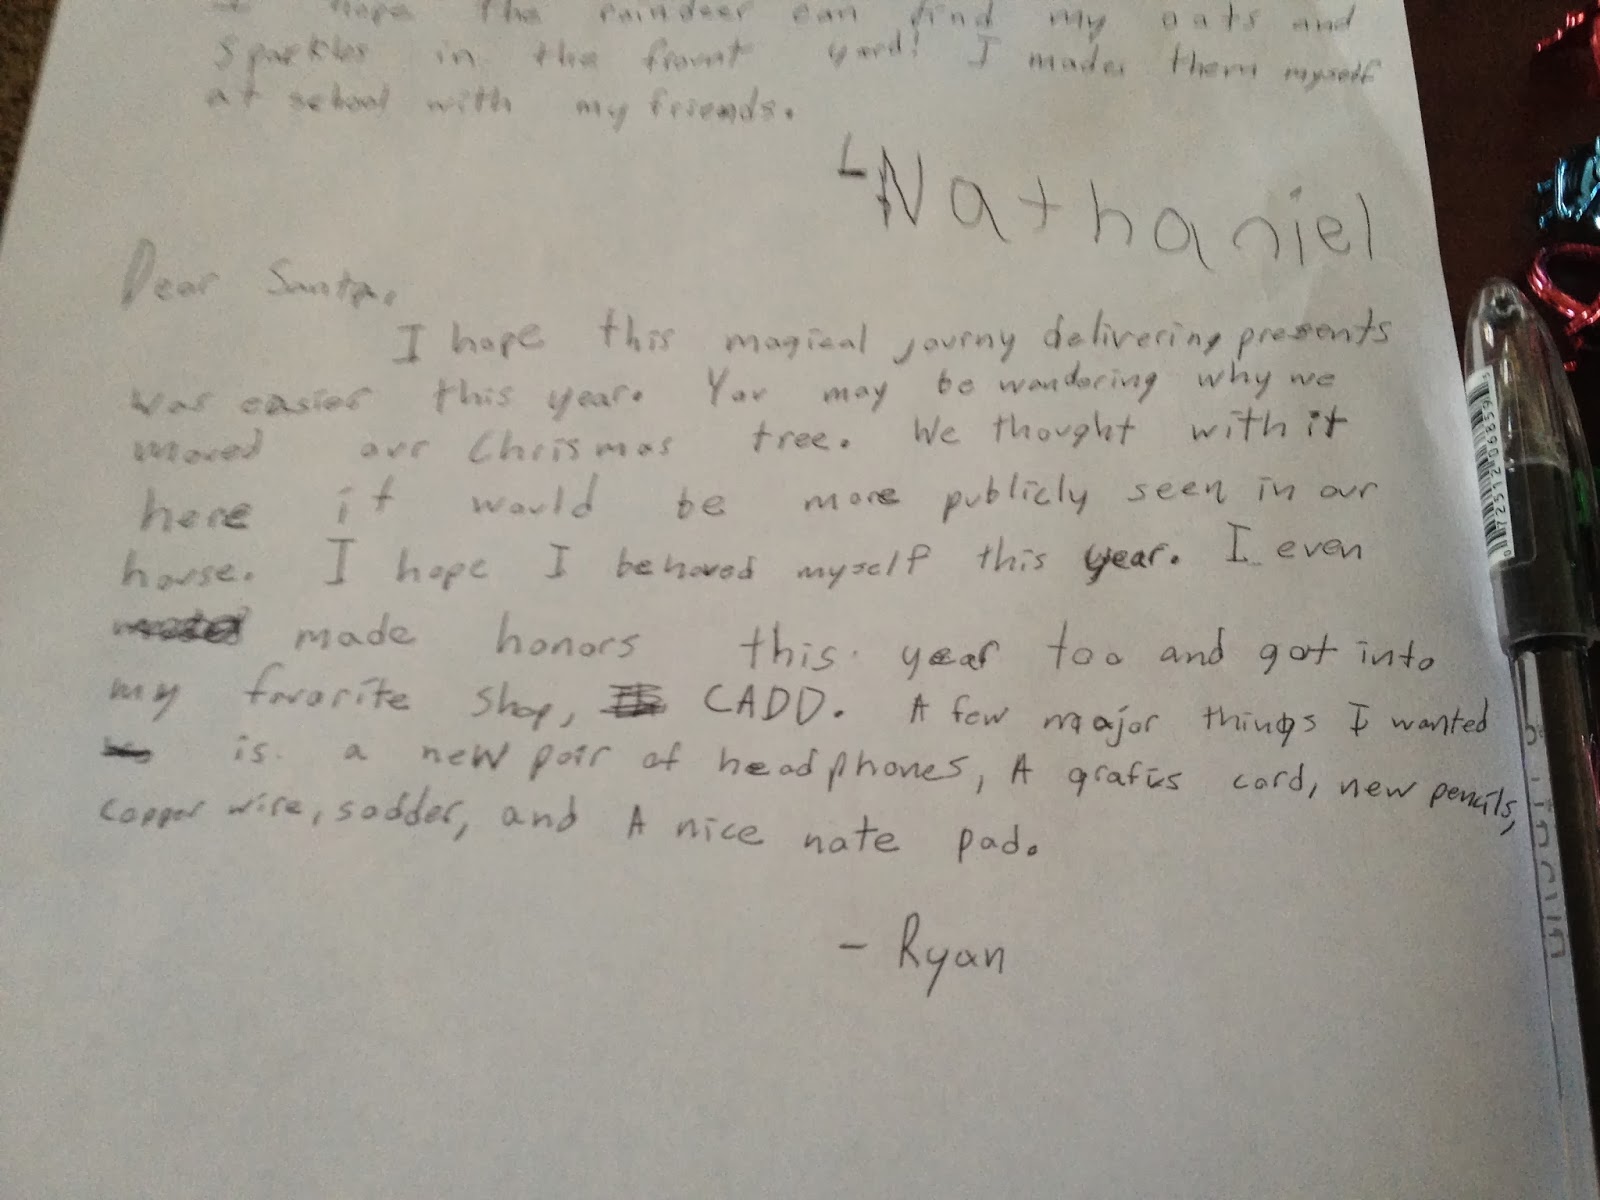 I hope the raindeer can find my oats and
sparkles in the frount yard! I mades them myself
at school with my friends.
- Nathaniel
Dear Santa,
I hope this magical journy delivering presents
was easier this year. You may be wondering why we
moved our Chrismas tree. We thought with it
here it would be more publicly seen in our
house. I hope I behaved myself this year. I even
made honors this year too and got into
my favorite shop, CADD. A few major things I wanted
is a new pair of headphones, A grafics card, new pencils,
copper wire, sodder, and A nice note pad.
- Ryan
0 72512 06859 5